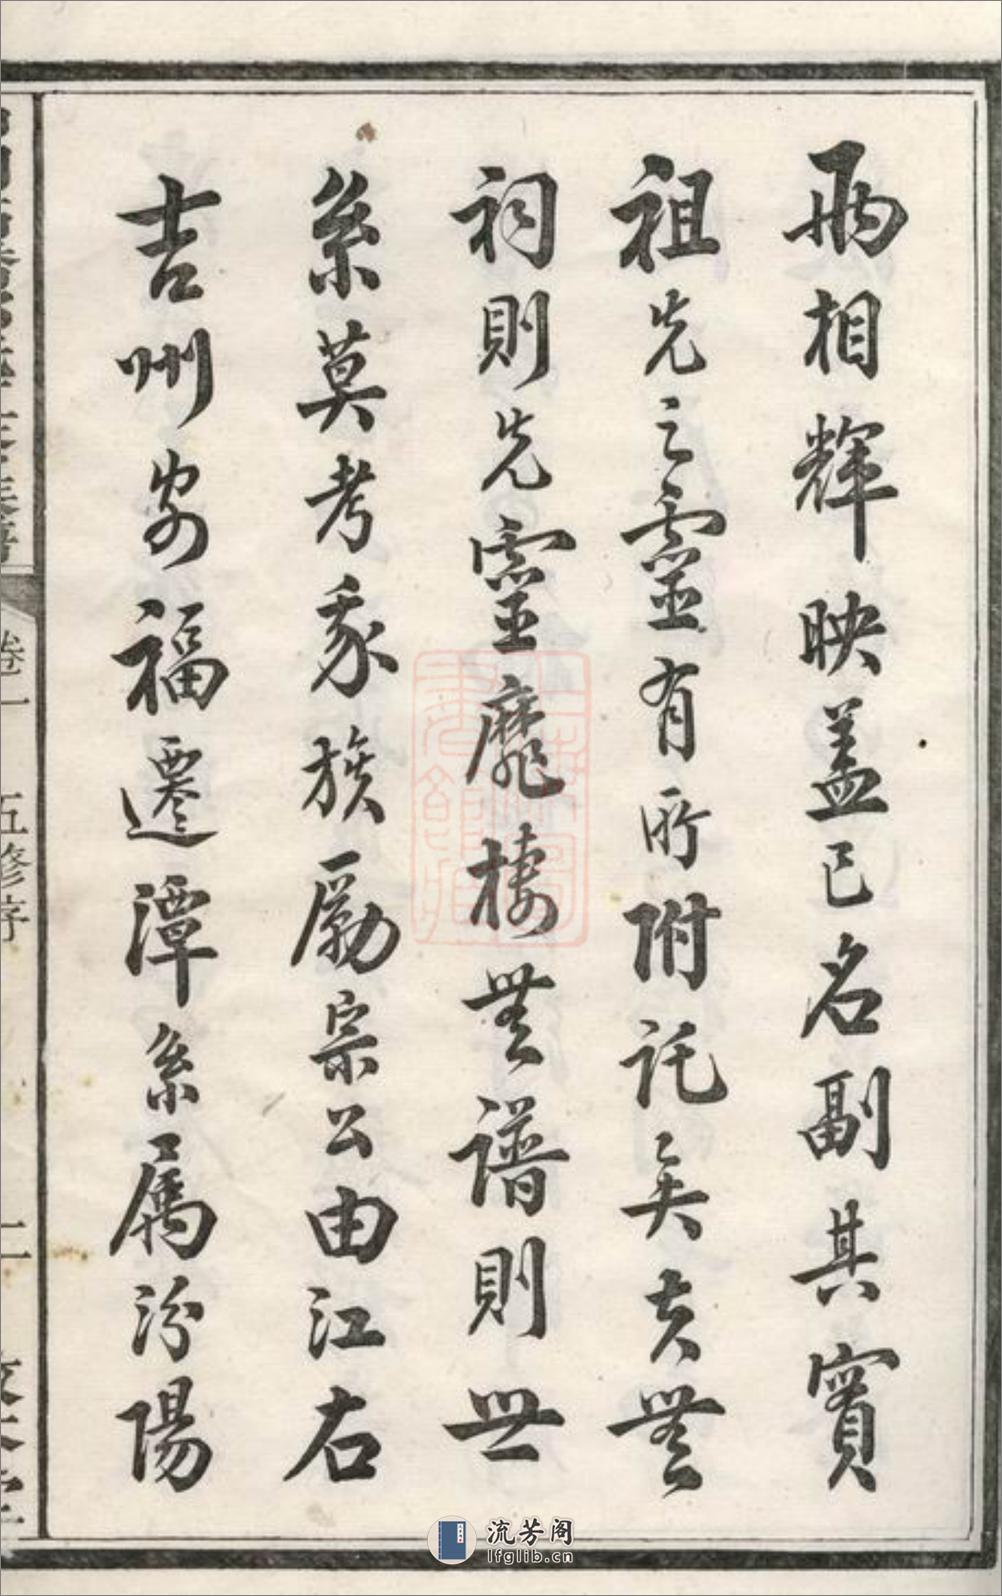 兩相輝映蓋已名副其實
祖先之靈有所附託矣夫無
祠則先靈靡棲無譜則世
系莫考我族勵宗公由江右
吉州安福遷潭系属汾陽
卷一
五修序
二
上海圖
書館藏
流芳阁
lfglib.cn